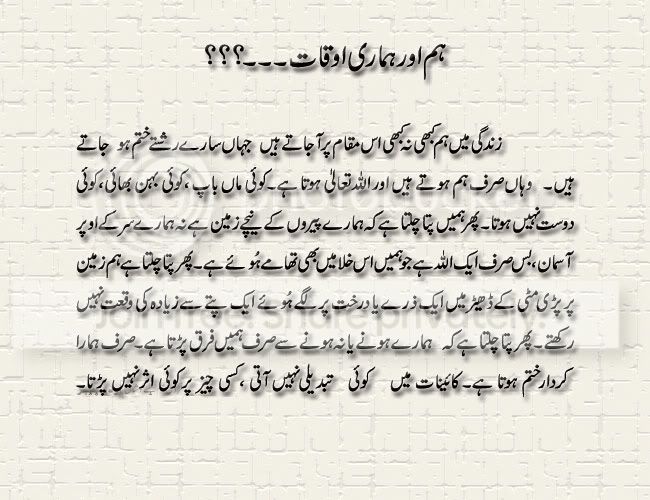 ہم اور ہماری اوقات ۔۔۔؟؟؟
زندگی میں ہم کبھی نہ کبھی اس مقام پر آ جاتے ہیں جہاں سارے رشتے ختم ہو جاتے
ہیں۔ وہاں صرف ہم ہوتے ہیں اور اللہ تعالیٰ ہوتا ہے۔ کوئی ماں باپ ،کوئی بہن بھائی، کوئی
دوست نہیں ہوتا۔ پھر ہمیں پتا چلتا ہے کہ ہمارے پیروں کے نیچے زمین ہے نہ ہمارے سر کے اوپر
آسمان، بس صرف ایک اللہ ہے جو ہمیں اس خلا میں بھی تھامے ہُوئے ہے۔ پھر پتا چلتا ہے ہم زمین
پر پڑی مٹی کے ڈھیڑ میں ایک ذرے یا درخت پر لگے ہُوئے ایک پتے سے زیادہ کی وقعت نہیں
رکھتے۔ پھر پتا چلتا ہے کہ ہمارے ہونے یا نہ ہونے سے صرف ہمیں فرق پڑتا ہے۔ صرف ہمارا
کردار ختم ہوتا ہے۔ کائینات میں کوئی تبدیلی نہیں آتی ،کسی چیز پر کوئی اثر نہیں پڑتا۔